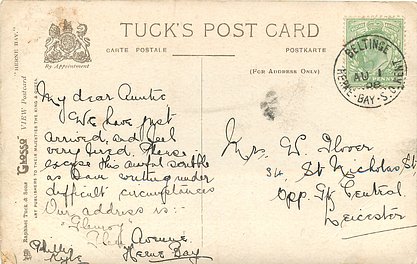 TUCK'S POST CARD
CARTE POSTALE
POSTKARTE
By Appointment
(FOR ADDRESS ONLY)
"HERNE BAY."
Raphael Tuck & Sons "Glosso" VIEW Postcard
ART PUBLISHERS TO THEIR MAJESTIES THE KING & QUEEN.
BELTINGE
AU
HERNE-BAY-S.O. KENT
My dear Auntie
We have just
arrived, and feel
very tired. Please
excuse this awful scribble
as I am writing under
difficult circumstances
Our address is:-
Avenue
Herne Bay
Phyllis
Kyle
Mrs W. Glover
34, St Nicholas St
Opp. Gt Central
Leicester